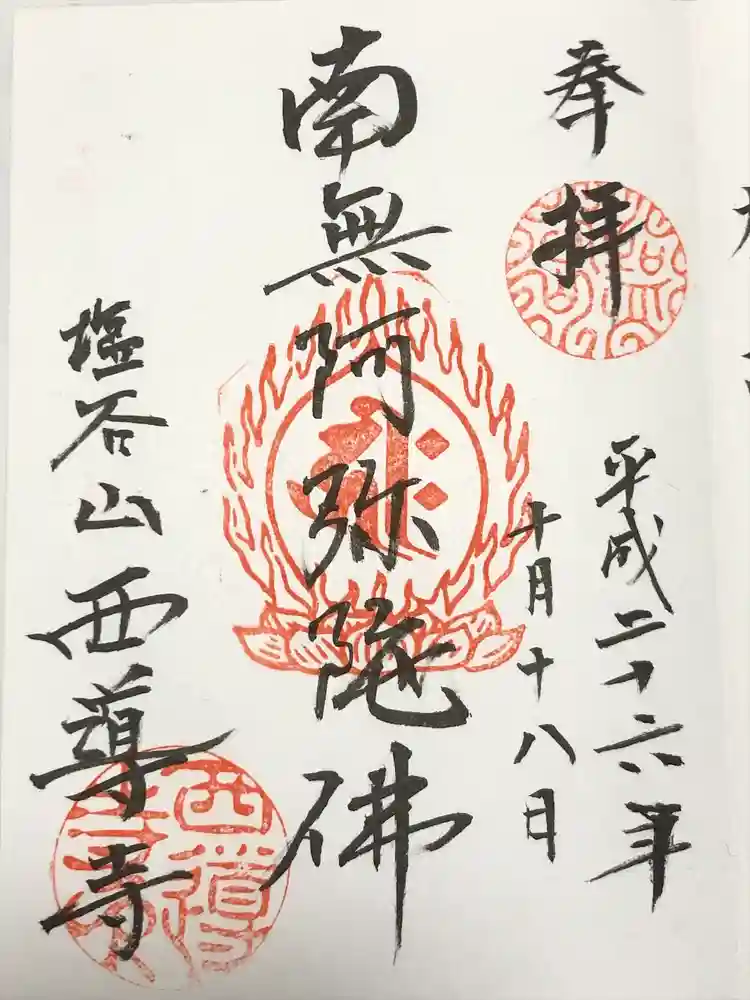 奉拝
平成二十六年
十月十八日
南無阿弥陀佛
塩谷山西導寺